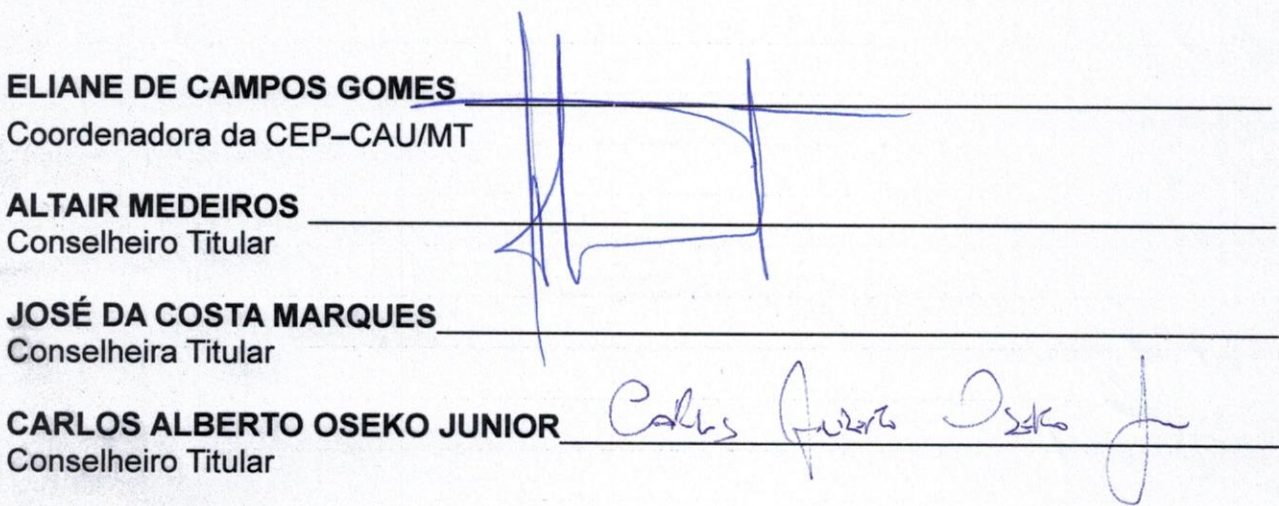 ELIANE DE CAMPOS GOMES
Coordenadora da CEP–CAU/MT
ALTAIR MEDEIROS
Conselheiro Titular
JOSÉ DA COSTA MARQUES
Conselheira Titular
CARLOS ALBERTO OSEKO JUNIOR Carlos Alberto Oseko Jr
Conselheiro Titular